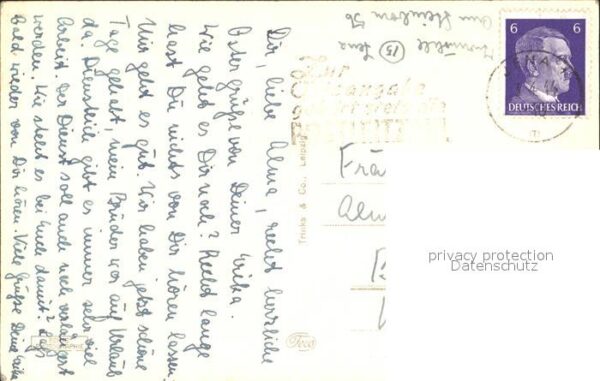 Dir, liebe Alma, recht herzliche
Ostergrüße von Deiner Erika.
Wie geht es Dir wohl? Recht lange
hast Du nichts von Dir hören lassen
Mir geht es gut. Wir haben jetzt schöne
Tage gehabt, mein Bruder war auf Urlaub
da. Dienstlich gibt es immer sehr viel
Arbeit. Der Dienst soll auch noch verlängert
werden. Wie steht es bei Euch damit? Laß
bald wieder von Dir hören. Viele Grüße Deine Erika
Trinks & Co., Leipzig
Teco
(15) Jena
Am Steinborn 56
Zur
Ortsangabe
gehört stets die
POSTLEITZAHL
JENA
6 6
DEUTSCHES REICH
privacy protection
Datenschutz